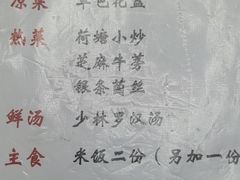 凉菜 草包花盆
热菜 荷塘小炒
芝麻牛蒡
银条茵丝
鲜汤 少林罗汉汤
主食 米饭二份（另加一份